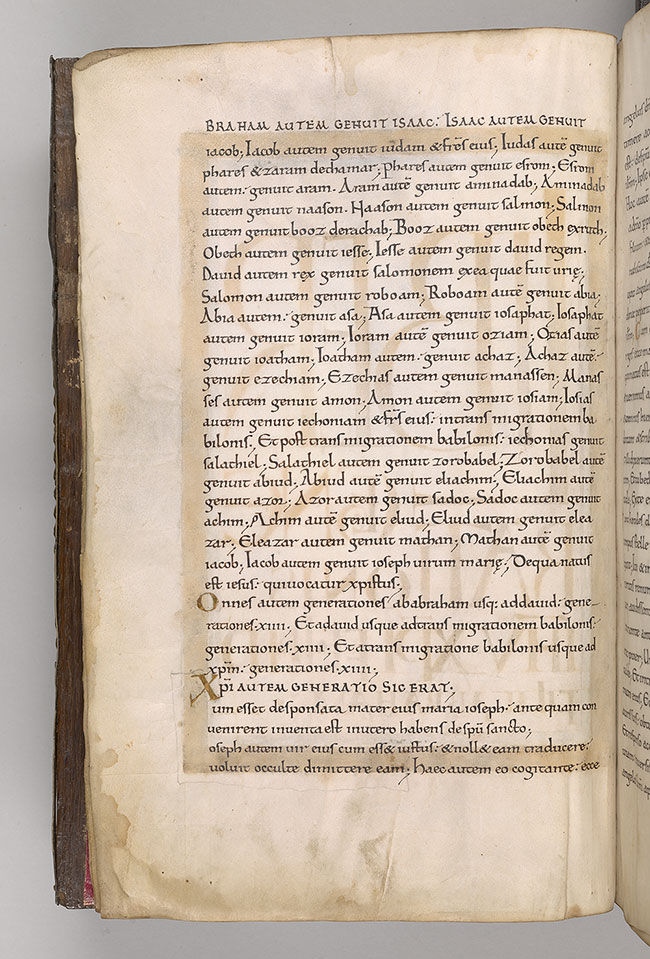 BRAHAM AUTEM GENUIT ISAAC: ISAAC AUTEM GENUIT
iacob; Iacob autem genuit iudam & fr̄es eius; Iudas autē genuit
phares & zaram dethamar; Phares autem genuit esrom; Esrom
autem: genuit aram. Aram autē genuit aminadab; Aminadab
autem genuit naason. Naason autem genuit salmon; Salmon
autem genuit booz derachab; Booz autem genuit obeth exruth;
Obeth autem genuit iesse; Iesse autem genuit david regem.
David autem rex genuit salomonem exea quae fuit urię;
Salomon autem genuit roboam; Roboam autē genuit abia;
Abia autem: genuit asa; Asa autem genuit iosaphat; Iosaphat
autem genuit ioram; Ioram autē genuit oziam; Ozias autē
genuit ioatham; Ioatham autem: genuit achaz; Achaz autē:
genuit ezechiam; Ezechias autem genuit manassen; Manas
ses autem genuit amon; Amon autem genuit iosiam; Iosias
autem genuit iechoniam & fr̄s eius: intransmigrationem ba
bilonis; Et post transmigrationem babilonis: iechonias genuit
salathiel; Salathiel autem genuit zorobabel; Zorobabel autē
genuit abiud; Abiud autē genuit eliachim; Eliachim autē
genuit azor; Azor autem genuit sadoc; Sadoc autem genuit
achim; Achim autē genuit eliud; Eliud autem genuit elea
zar; Eleazar autem genuit mathan; Mathan autē genuit
iacob; Iacob autem genuit ioseph virum marię; De qua natus
est iesus: qui vocatur xpistus;
Omnes autem generationes ababraham usq: addavid: gene
rationes .xiiii; Et adavid usque adtransmigrationem babilonis:
generationes .xiiii; Et atransmigratione babilonis usque ad
xp̄m: generationes .xiiii;
XP̄I AUTEM GENERATIO SIC ERAT;
um esset desponsata mater eius maria ioseph: ante quam con
venirent inventa est inutero habens despū sancto;
oseph autem vir eius cum ess& iustus: & noll& eam traducere:
voluit occulte dimittere eam; Haec autem eo cogitante: ecce